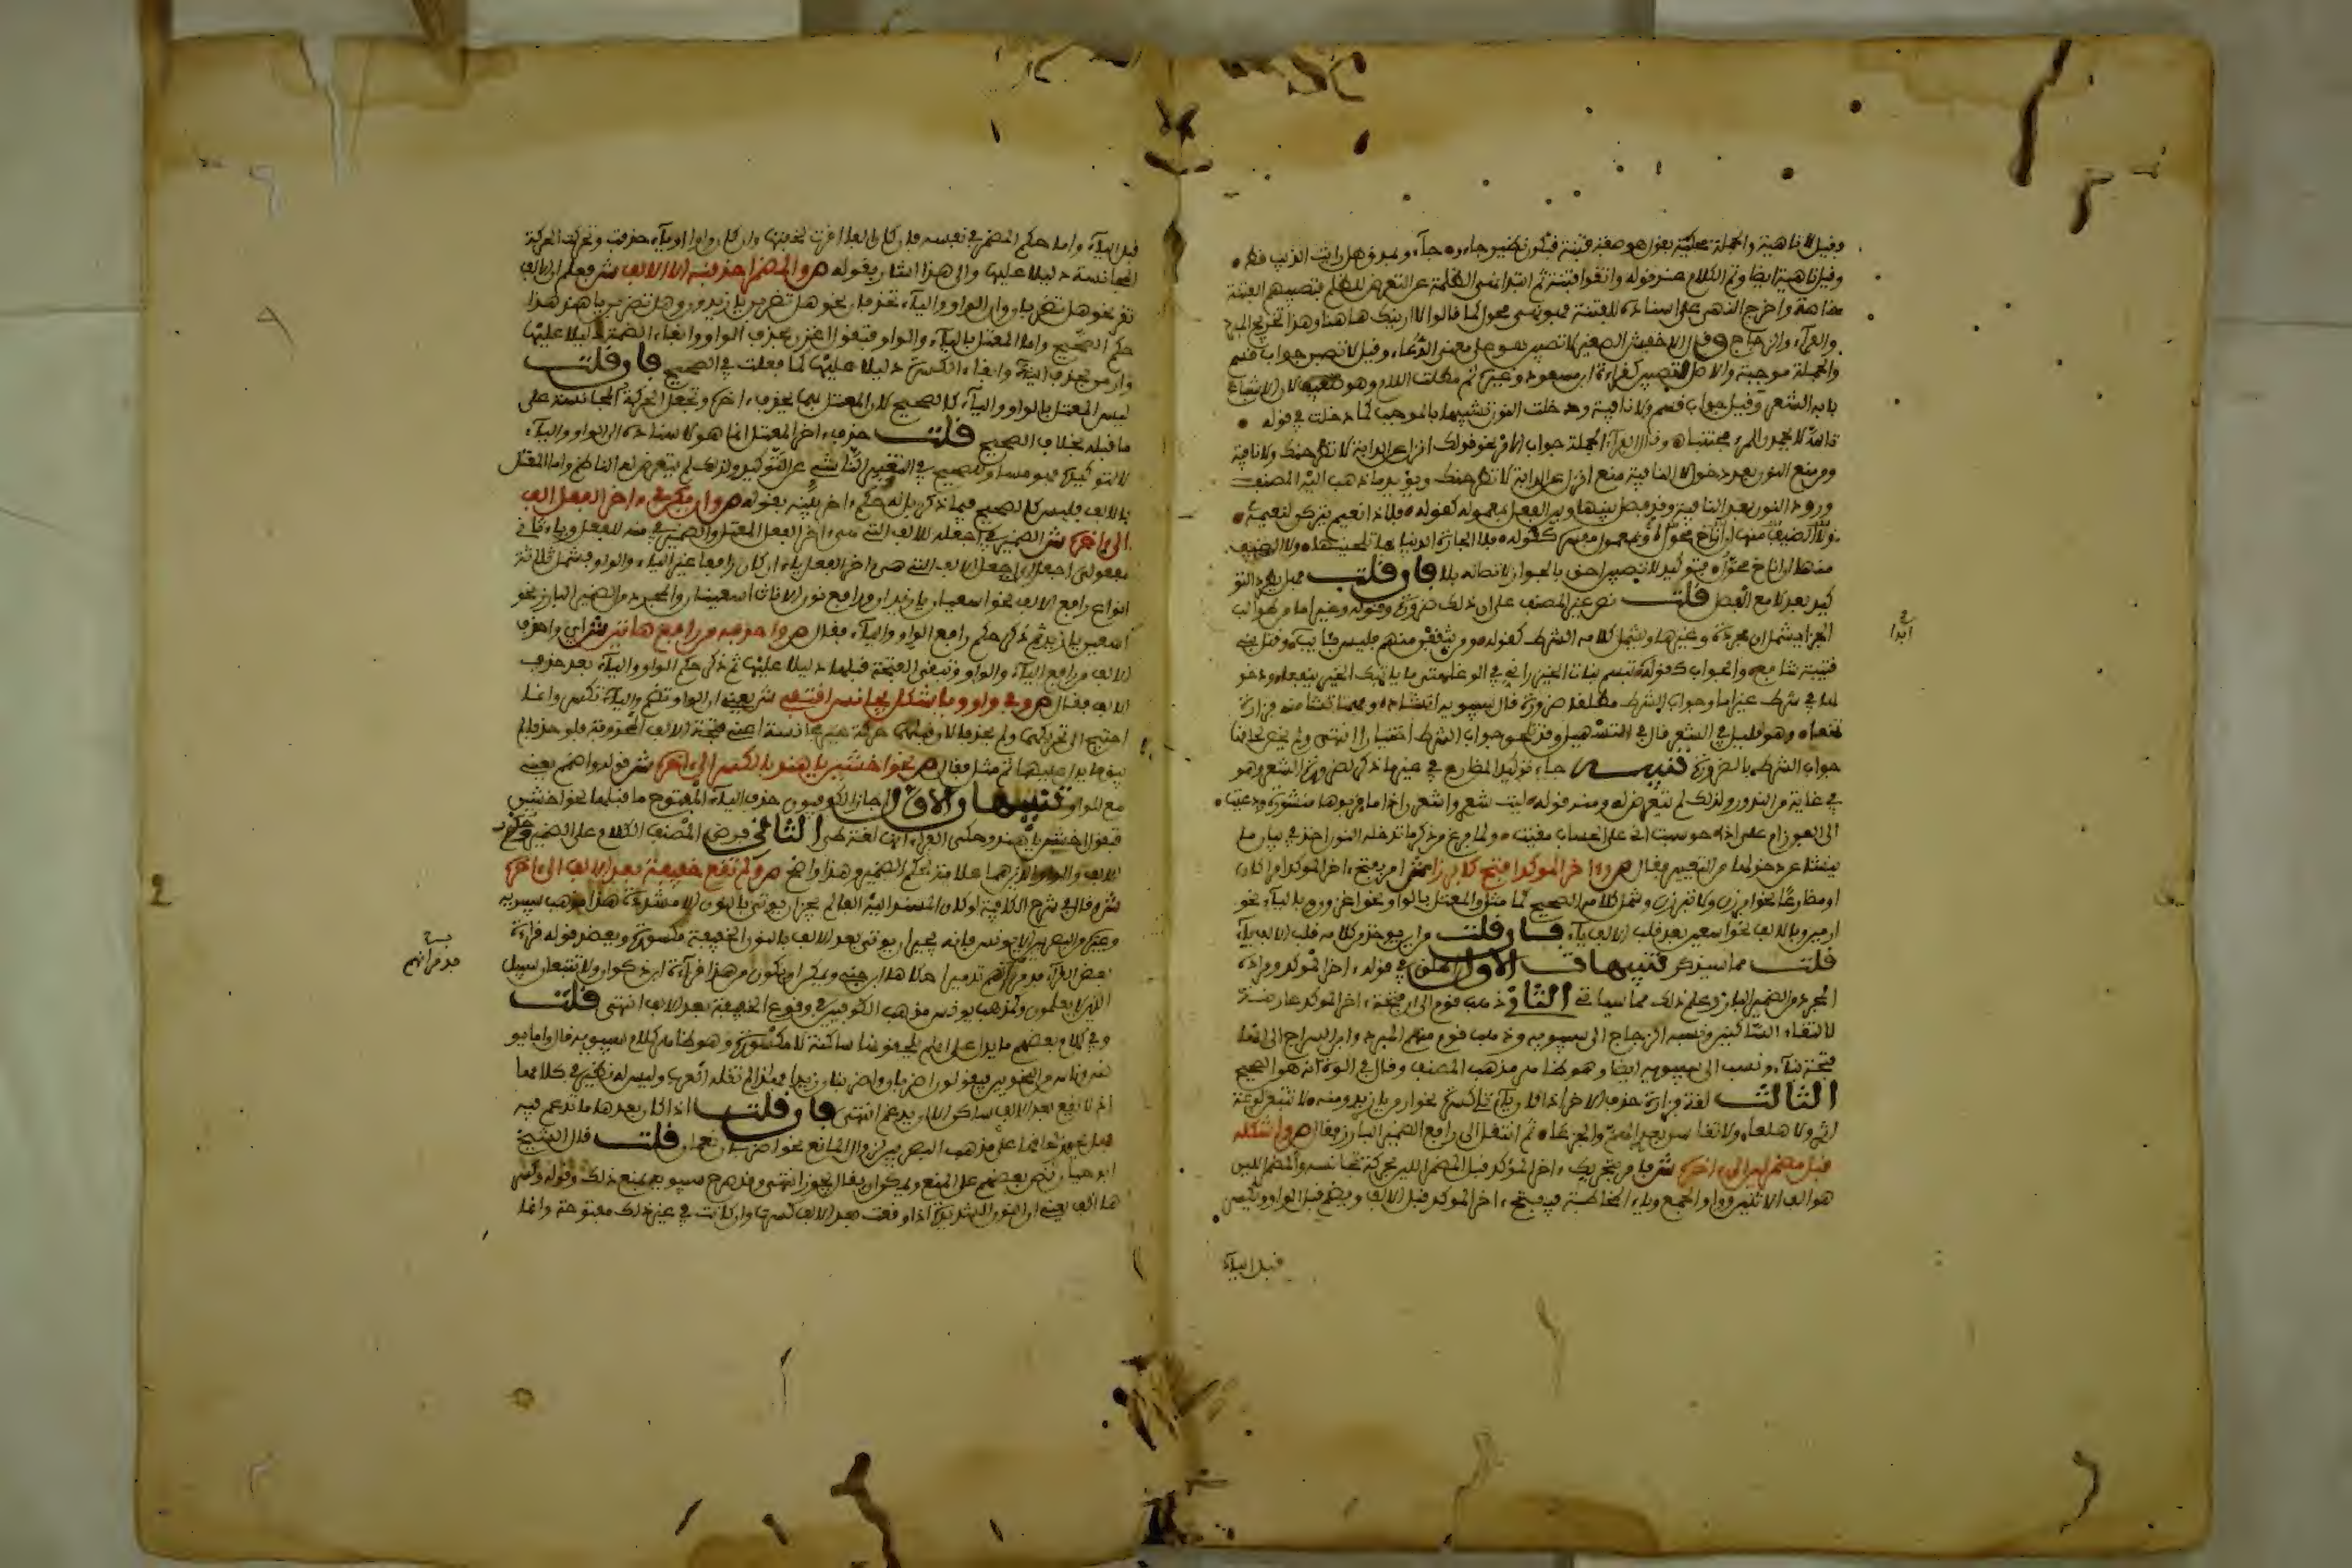 وقيل لا ناهية والجملة محكية بقول هو صفة فتنة فتكون نظير جاءوا بمذق هل رأيت الذيب قط
وقيل ناهية ايضا وتم الكلام عند قوله واتقوا فتنة ثم ابتدا نهي الظلمة عن التعرض للظلم فتصيبهم الفتنة
خاصة واخرج النهي على اسناده للفتنة فهو نهي محول كما قالوا لا ارينك هاهنا وهذا تخريج المبرد
والفراء والزجاج وقال الاخفش الصغير لا تصيبن هو على معنى الدعاء وقيل لا تصيبن جواب قسم
والجملة موجبة والاصل لتصيبن كقراءة ابن مسعود وغيره ثم مطلت اللام وهو ضعيف لان الاشباع
بابه الشعر وقيل جواب قسم ولا نافية ودخلت النون تشبيها بالموجب كما دخلت في قوله
تالله لا يحمدن المرء مجتنبا وقال الفراء الجملة جواب الامر نحو قولك انزل عن الدابة لا تطرحنك ولا نافية
ومن منع النون بعد دخول لا النافية منع انزل عن الدابة لا تطرحنك ويؤيد ما ذهب اليه المصنف
ورود النون بعد النافية وقد فصل بينها وبين الفعل بمعموله كقوله فلا ذا نعيم يتركن لنعيمه
ولا الضيف منها ان اناخ محول او بمعمول مفسر كقوله فلا الجارة الدنيا بها تلحينها ولا الضيف
منها ان اناخ محول فتوكيد لا تصيبن احق بالجواز لاتصاله بلا فان قلت فهل يطرد التو
كيد بعد لا مع الفصل قلت نص غير المصنف على ان ذلك ضرورة وقوله وغير اما من طوالب
الجزا يشمل ان مجردة وغيرها ويشمل كلامه الشرط كقوله من يثقفن منهم فليس بآيب وقتل بني
قتيبة شافي والجواب كقوله نبتم نبات الخيزراني في الوغا متى ما ياتك الخير ينفعا ودخو
لها في شرط غير اما وجواب الشرط مطلقا ضرورة قال سيبويه انشاده ومهما تشأ منه فزارة
تمنعا وهو قليل في الشعر قال في التسهيل وقد تلحق جواب الشرط اختيارا انتهى ولم يخص لحاقها
جواب الشرط بالضرورة تنبيه جاء توكيد المضارع في غير ما ذكر لضرورة الشعر وهو
في غاية من الندور ولذلك لم يتعرض له ومنه قوله ليت شعري واشعرن اذا ما قربوها منشورة ودعيت
الى الفوز ام علي اذا حوسبت اني على الحساب مقيت ولما فرغ من ذكر ما تدخله النون اخذ في بيان ما
ينشا عن دخولها من التغيير فقال ص واخر الموكد افتح كابرزا ش امر بفتح اخر الموكد امرا كان
او مضارعا نحو ابرزن ولا تبرزن وشمل كلامه الصحيح كما مثل والمعتل بالواو نحو اغزون وبالياء نحو
ارمين وبالالف نحو اسعين بعد قلب الالف ياء فان قلت من اين يوخذ من كلامه قلب الالف ياء
قلت مما سيذكر تنبيهات الاول اطلق في قوله اخر الموكد ومراده
المجرد من الضمير البارز وعلم ذلك مما سياتي الثاني ذهب قوم الى ان فتحة اخر الموكد عارضة
لالتقاء الساكنين ونسبه الزجاج الى سيبويه وذهب قوم منهم المبرد وابن السراج الى انها
فتحة بناء ونسب الى سيبويه ايضا وهو ظاهر مذهب المصنف وقال في الوه انه هو الصحيح
الثالث لغة فزارة حذف الاخر اذا كان ياء تلي كسرة نحو ارمن يا زيد ومنه لا تتبعن لوعة
اثري ولا هلعا ولا تقاسن بعدي الهم والجزعا ثم انتقل الى رافع الضمير البارز فقال ص واشكله
قبل مضمر لين الى اخره ش فامر بتحريك اخر الموكد قبل المضمر اللين بحركة تجانسه والمضمر اللين
هو الف الاثنين وواو الجمع وياء المخاطبة فيفتح اخر الموكد قبل الالف ويضم قبل الواو ويكسر
قبل الياء
في
ابدا
قبل الياء واما حكم المضمر في نفسه فان كان الفا اقرت لخفتها وان كان واوا او ياء حذفت وتحركت الحركة
المجانسة دليلا عليها والى هذا اشار بقوله ص والمضمر احذفنه الا الالف ش فعلم ان الالف
تقر نحو هل تضربان وان الواو والياء تحذفان نحو هل تضربن يا زيدون وهل تضربن يا هند هذا
حكم الصحيح واما المعتل بالياء والواو فتقول اغزن بحذف الواو وابقاء الضمة دليلا عليها
وارمن بحذف الياء وابقاء الكسرة دليلا عليها كما فعلت في الصحيح فان قلت
ليس المعتل بالواو والياء كالصحيح لان المعتل بهما يحذف اخره وتجعل الحركة المجانسة على
ما قبله بخلاف الصحيح قلت حذف اخر المعتل انما هو لاسناده الى الواو والياء
لا لتوكيده فهو مساو للصحيح في التغيير الناشي عن التوكيد ولذلك لم يتعرض له الناظم واما المعتل
بالالف فليس كالصحيح فيما ذكر بل له حكم اخر بينه بقوله ص وان يكن في اخر الفعل الف
الى اخره ش الضمير في اجعله للالف التي هي اخر الفعل المعتل والضمير في منه للفعل وياء ثاني
مفعولي اجعل اي اجعل الالف التي هي اخر الفعل ياء ان كان رافعا غير الياء والواو فشمل ثلاثة
انواع رافع الالف نحو اسعيان يا زيدان ورافع نون الاناث اسعينان والمجرد من الضمير البارز نحو
اسعين يا زيد ثم ذكر حكم رافع الواو والياء فقال ص واحذفه من رافع هاتين ش اي واحذف
الالف من رافع الياء والواو وتبقى الفتحة قبلهما دليلا عليها ثم ذكر حكم الواو والياء بعد حذف
الالف فقال ص وفي واو ويا شكل مجانس اقتفي ش يعني ان الواو تضم والياء تكسر وانما
احتيج الى تحريكهما ولم يحذفا لان قبلهما حركة غير مجانسة اعني فتحة الالف المحذوفة فلو حذفا لم
يبق ما يدل عليهما ثم مثل فقال ص نحو اخشين يا هند بالكسر الى اخره ش قوله واضمم يعني
مع الواو تنبيهان الاول اجاز الكوفيون حذف الياء المفتوح ما قبلها نحو اخشين
فتقول اخشن يا هند وحكى الفراء انها لغة طي الثاني فرض المصنف الكلام على الضمير وحكم
الالف والواو اللذين هما علامة بحكم الضمير وهذا واضح ص ولم تقع خفيفة بعد الالف الى اخره
ش وقال في شرح الكافية لو كان المسند اليه الفا لم يجز ان يوتى بالنون الا مشددة هذا مذهب سيبويه
وغيره من البصريين الا يونس فانه يجيز ان يوتى بعد الالف بالنون الخفيفة مكسورة ويعضد قوله قراءة
بعض القراء فدمرانهم تدميرا حكاها ابن جني ويمكن ان يكون من هذا قراءة ابن ذكوان ولا تتبعان سبيل
الذين لا يعلمون ومذهب يونس مذهب الكوفيين في وقوع الخفيفة بعد الالف انتهى قلت
وفي كلام بعضهم ما يدل على انهم يلحقونها ساكنة لا مكسورة وهو ظاهر كلام سيبويه قال واما يو
نس وناس من النحويين فيقولون اضربان واضربنان زيدا فهذا لم تقله العرب وليس له نظير في كلامها
اذ لا يقع بعد الالف ساكن الا ان يدغم انتهى فان قلت اذا كان بعدها ما تدغم فيه
فهل يجوز لحاقها على مذهب البصريين لزوال المانع نحو اضربان نعمان قلت قال الشيخ
ابو حيان نص بعضهم على المنع ويمكن ان يقال يجوز انتهى وقد صرح سيبويه بمنع ذلك وقوله وكسر
ها الف يعني ان النون الشديدة اذا وقعت بعد الالف كسرت وان كانت في غير ذلك مفتوحة وانما
فدمرانهم